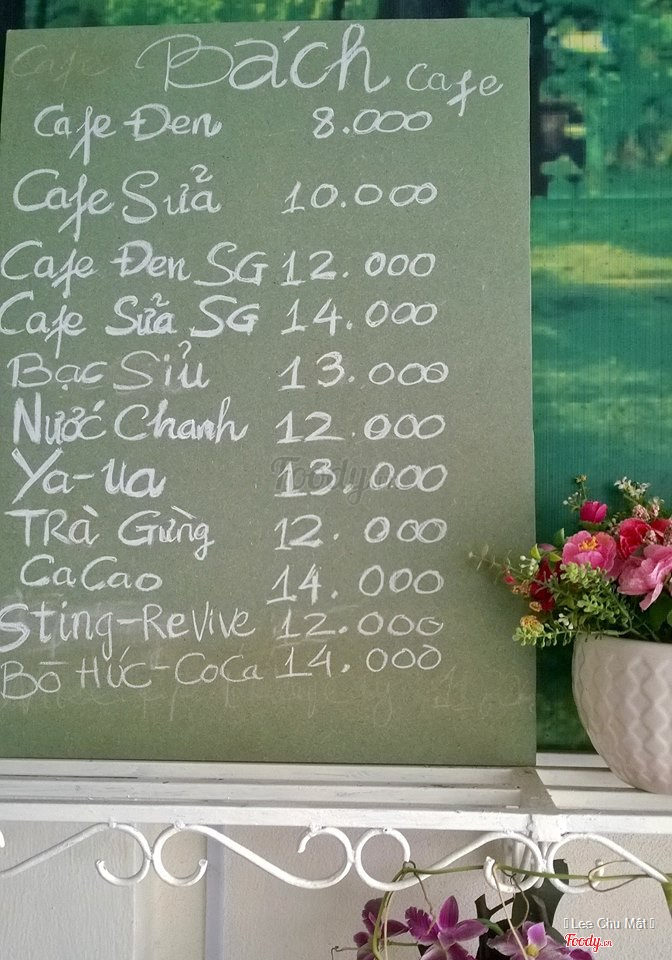 Cafe Bách Cafe
Cafe Đen 8.000
Cafe Sửả 10.000
Cafe Đen SG 12.000
Cafe Sửa SG 14.000
Bạc Siủ 13.000
Nước Chanh 12.000
Ya-ua 13.000
TRà Gừng 12.000
CaCao 14.000
Sting-ReVive 12.000
Bò HÚC-CoCa 14.000
Foody.vn
Lee Chu Mất
Foody.vn